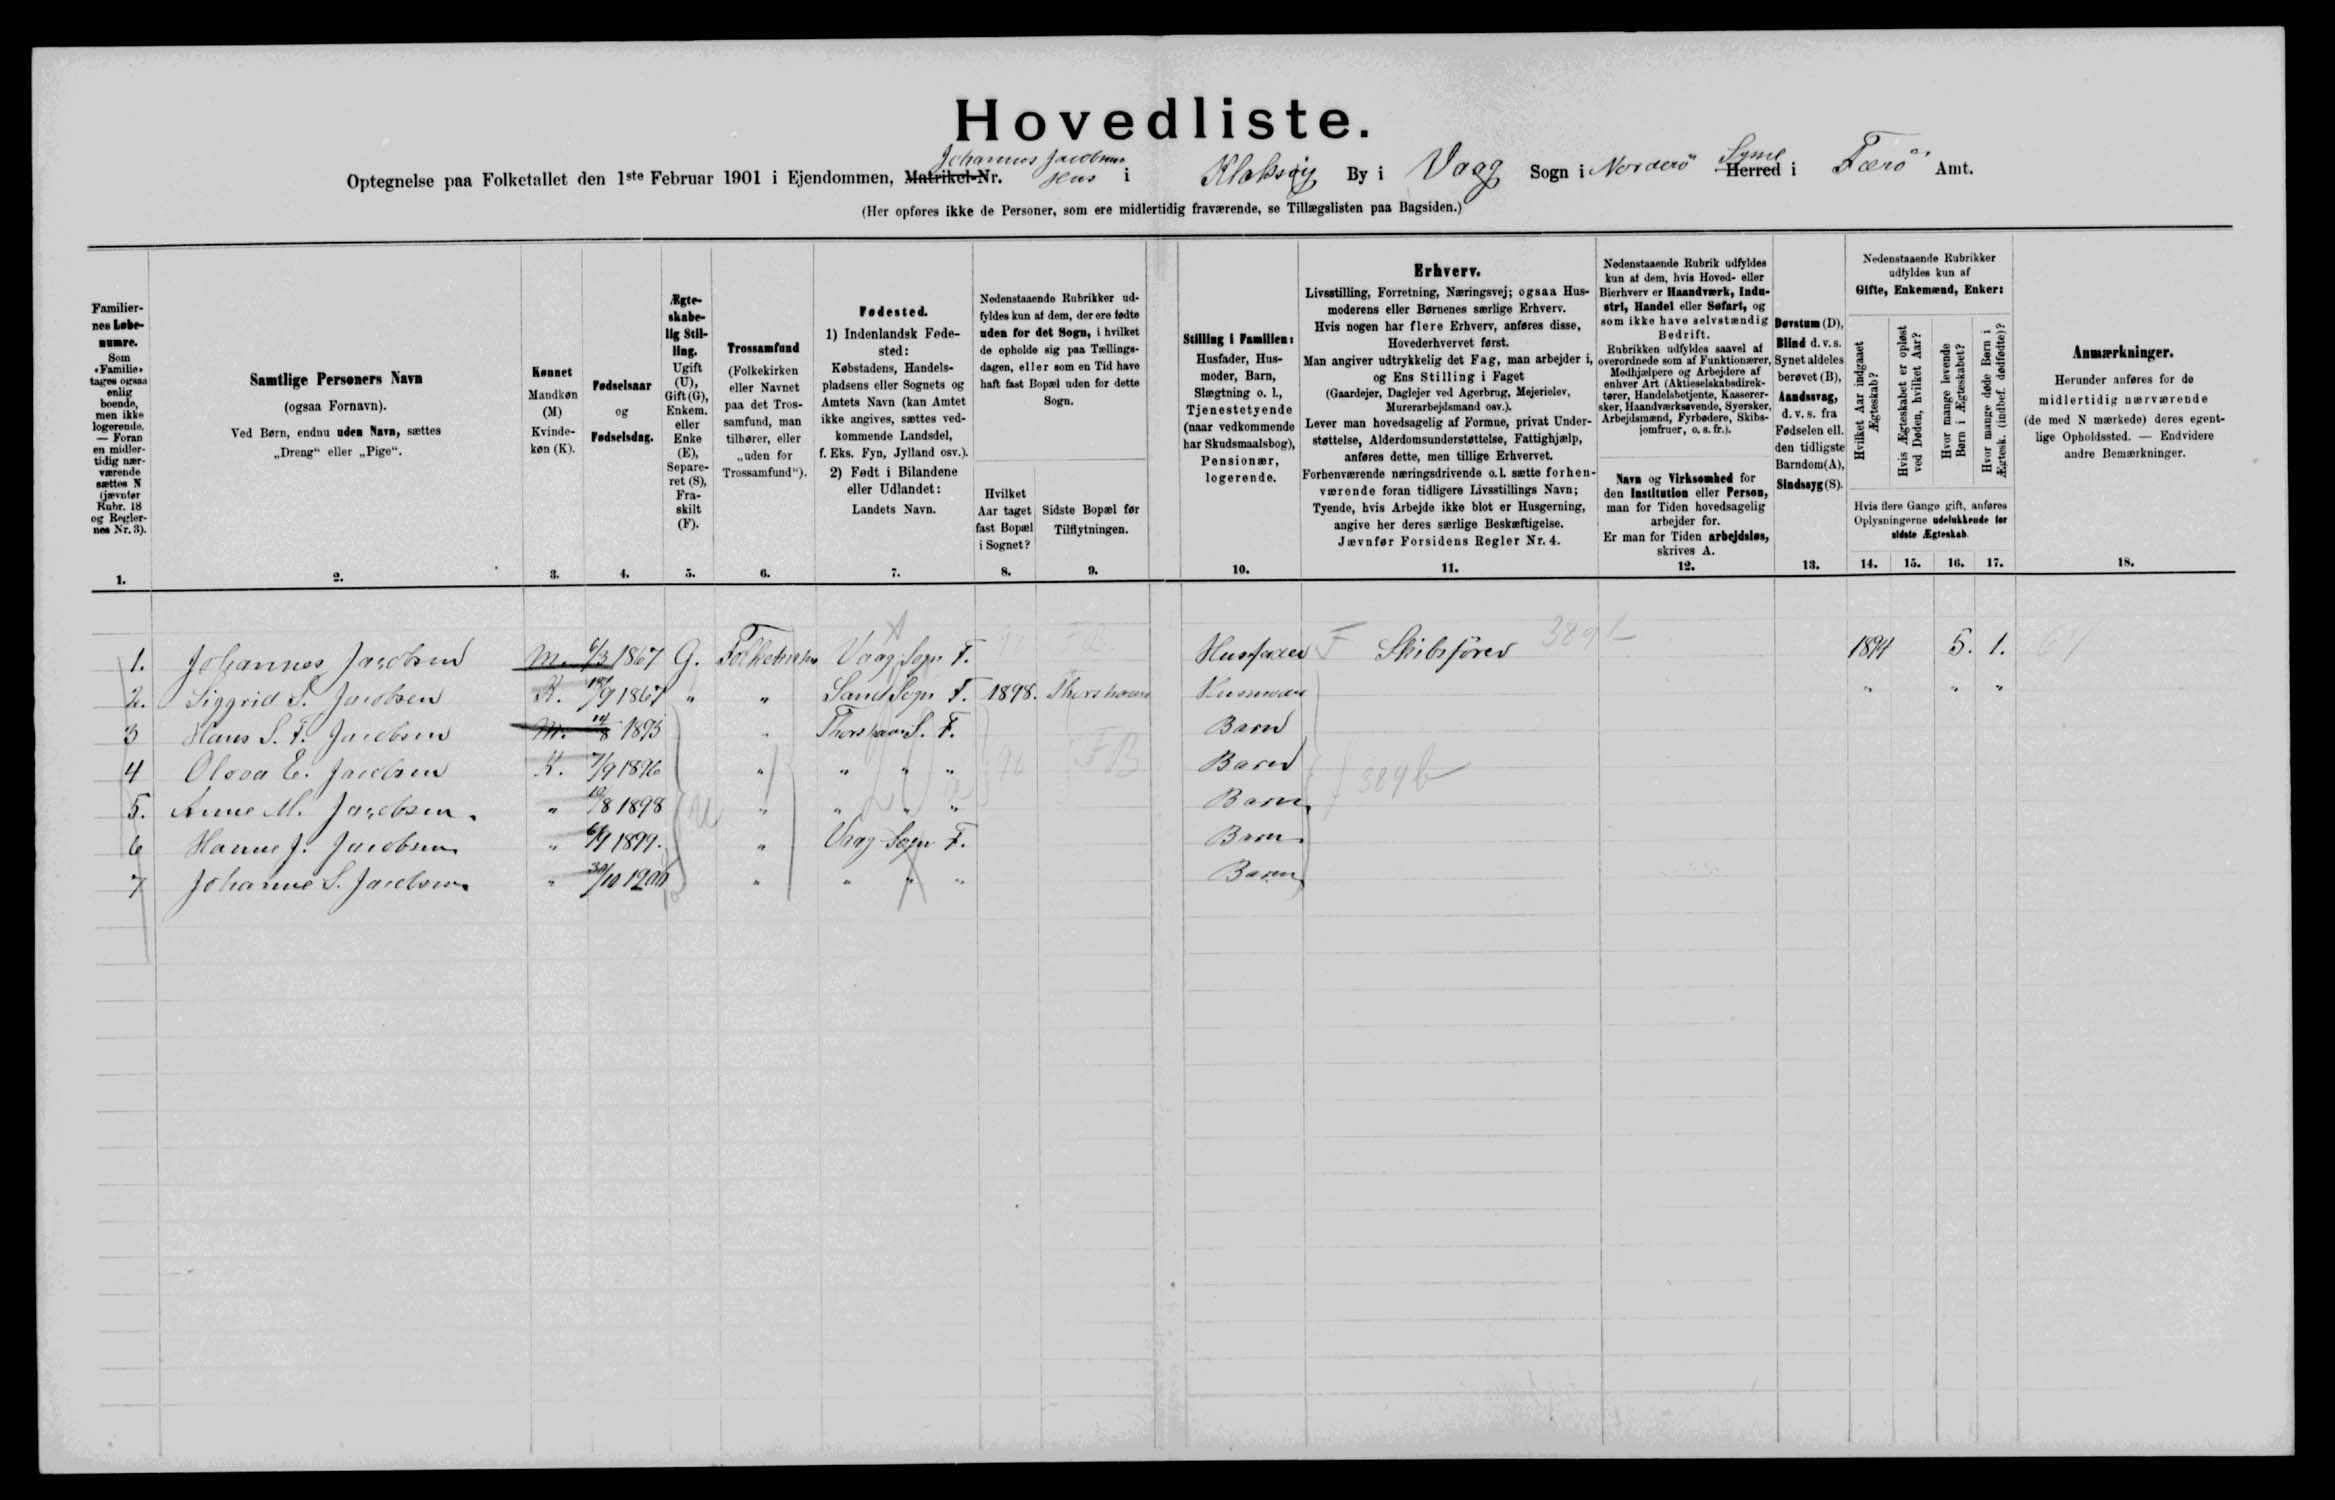 Hovedliste.
Optegnelse paa Folketallet den 1ste Februar 1901 i Ejendommen, Matrikel-Nr. Johannes Jacobsens Hus i Klaksvig By i Vaag Sogn i Norderö Herred Sysel i Færö Amt.
(Her opføres ikke de Personer, som ere midlertidig fraværende, se Tillægslisten paa Bagsiden.)
Familiernes Løbenumre.
Som «Familie» tages ogsaa enlig boende, men ikke logerende. — Foran en midlertidig nærværende sættes N (jævnfør Rubr. 18 og Reglernes Nr. 3).
1.
Samtlige Personers Navn
(ogsaa Fornavn).
Ved Børn, endnu uden Navn, sættes
„Dreng“ eller „Pige“.
2.
Kønnet
Mandkøn (M)
Kvindekøn (K).
3.
Fødselsaar
og
Fødselsdag.
4.
Ægteskabelig Stilling.
Ugift (U), Gift (G), Enkem. eller Enke (E), Separeret (S), Fraskilt (F).
5.
Trossamfund
(Folkekirken eller Navnet paa det Trossamfund, man tilhører, eller „uden for Trossamfund“).
6.
Fødested.
1) Indenlandsk Fødested:
Købstadens, Handelspladsens eller Sognets og Amtets Navn (kan Amtet ikke angives, sættes vedkommende Landsdel, f. Eks. Fyn, Jylland osv.).
2) Født i Bilandene eller Udlandet:
Landets Navn.
7.
Nedenstaaende Rubrikker udfyldes kun af dem, der ere fødte uden for det Sogn, i hvilket de opholde sig paa Tællingsdagen, eller som en Tid have haft fast Bopæl uden for dette Sogn.
Hvilket Aar taget fast Bopæl i Sognet?
8.
Sidste Bopæl før Tilflytningen.
9.
Stilling i Familien:
Husfader, Husmoder, Barn, Slægtning o. l., Tjenestetyende (naar vedkommende har Skudsmaalsbog), Pensionær, logerende.
10.
Erhverv.
Livsstilling, Forretning, Næringsvej; ogsaa Husmoderens eller Børnenes særlige Erhverv.
Hvis nogen har flere Erhverv, anføres disse, Hovederhvervet først.
Man angiver udtrykkelig det Fag, man arbejder i, og Ens Stilling i Faget
(Gaardejer, Daglejer ved Agerbrug, Mejerielev, Murerarbejdsmand osv.).
Lever man hovedsagelig af Formue, privat Understøttelse, Alderdomsunderstøttelse, Fattighjælp, anføres dette, men tillige Erhvervet.
Forhenværende næringsdrivende o. l. sætte forhenværende foran tidligere Livsstillings Navn;
Tyende, hvis Arbejde ikke blot er Husgerning, angive her deres særlige Beskæftigelse.
Jævnfør Forsidens Regler Nr. 4.
11.
Nedenstaaende Rubrik udfyldes kun af dem, hvis Hoved- eller Bierhverv er Haandværk, Industri, Handel eller Søfart, og som ikke have selvstændig Bedrift.
Rubrikken udfyldes saavel af overordnede som af Funktionærer, Medhjælpere og Arbejdere af enhver Art (Aktieselskabsdirektører, Handelsbetjente, Kasserersker, Haandværkssvende, Syersker, Arbejdsmænd, Fyrbødere, Skibsjomfruer, o. s. fr.).
Navn og Virksomhed for den Institution eller Person, man for Tiden hovedsagelig arbejder for.
Er man for Tiden arbejdsløs, skrives A.
12.
Døvstum (D), Blind d. v. s. Synet aldeles berøvet (B), Aandssvag, d. v. s. fra Fødselen ell. den tidligste Barndom (A), Sindssyg (S).
13.
Nedenstaaende Rubrikker udfyldes kun af
Gifte, Enkemænd, Enker:
Hvilket Aar indgaaet Ægteskab?
Hvis Ægteskabet er opløst ved Døden, hvilket Aar?
Hvor mange levende Børn i Ægteskabet?
Hvor mange døde Børn i Ægtesk. (indbef. dødfødte)?
Hvis flere Gange gift, anføres Oplysningerne udelukkende for sidste Ægteskab.
14. 15. 16. 17.
Anmærkninger.
Herunder anføres for de midlertidig nærværende (de med N mærkede) deres egentlige Opholdssted. — Endvidere andre Bemærkninger.
18.
1. Johannes Jacobsen M. 6/3 1867 G. Folkekirken Vaag Sogn F. Husfader F Skibsförer 389 b 1894 5. 1.
2. Siggrid S. Jacobsen K. 18/9 1867 " " Sand Sogn F. 1898. Thorshavn Husmoder " " "
3 Hans S. F. Jacobsen M. 14/8 1895 " Thorshavn S. F. Barn
4 Olova E. Jacobsen K. 7/9 1896 " " " " FB Barn 389 b
5. Anne M. Jacobsen. " 10/8 1898 " " " " Barn
6 Hanne J. Jacobsen " 6/9 1899. " Vaag Sogn F. Barn
7 Johanne S. Jacobsen " 30/10 1900 " " " " Barn